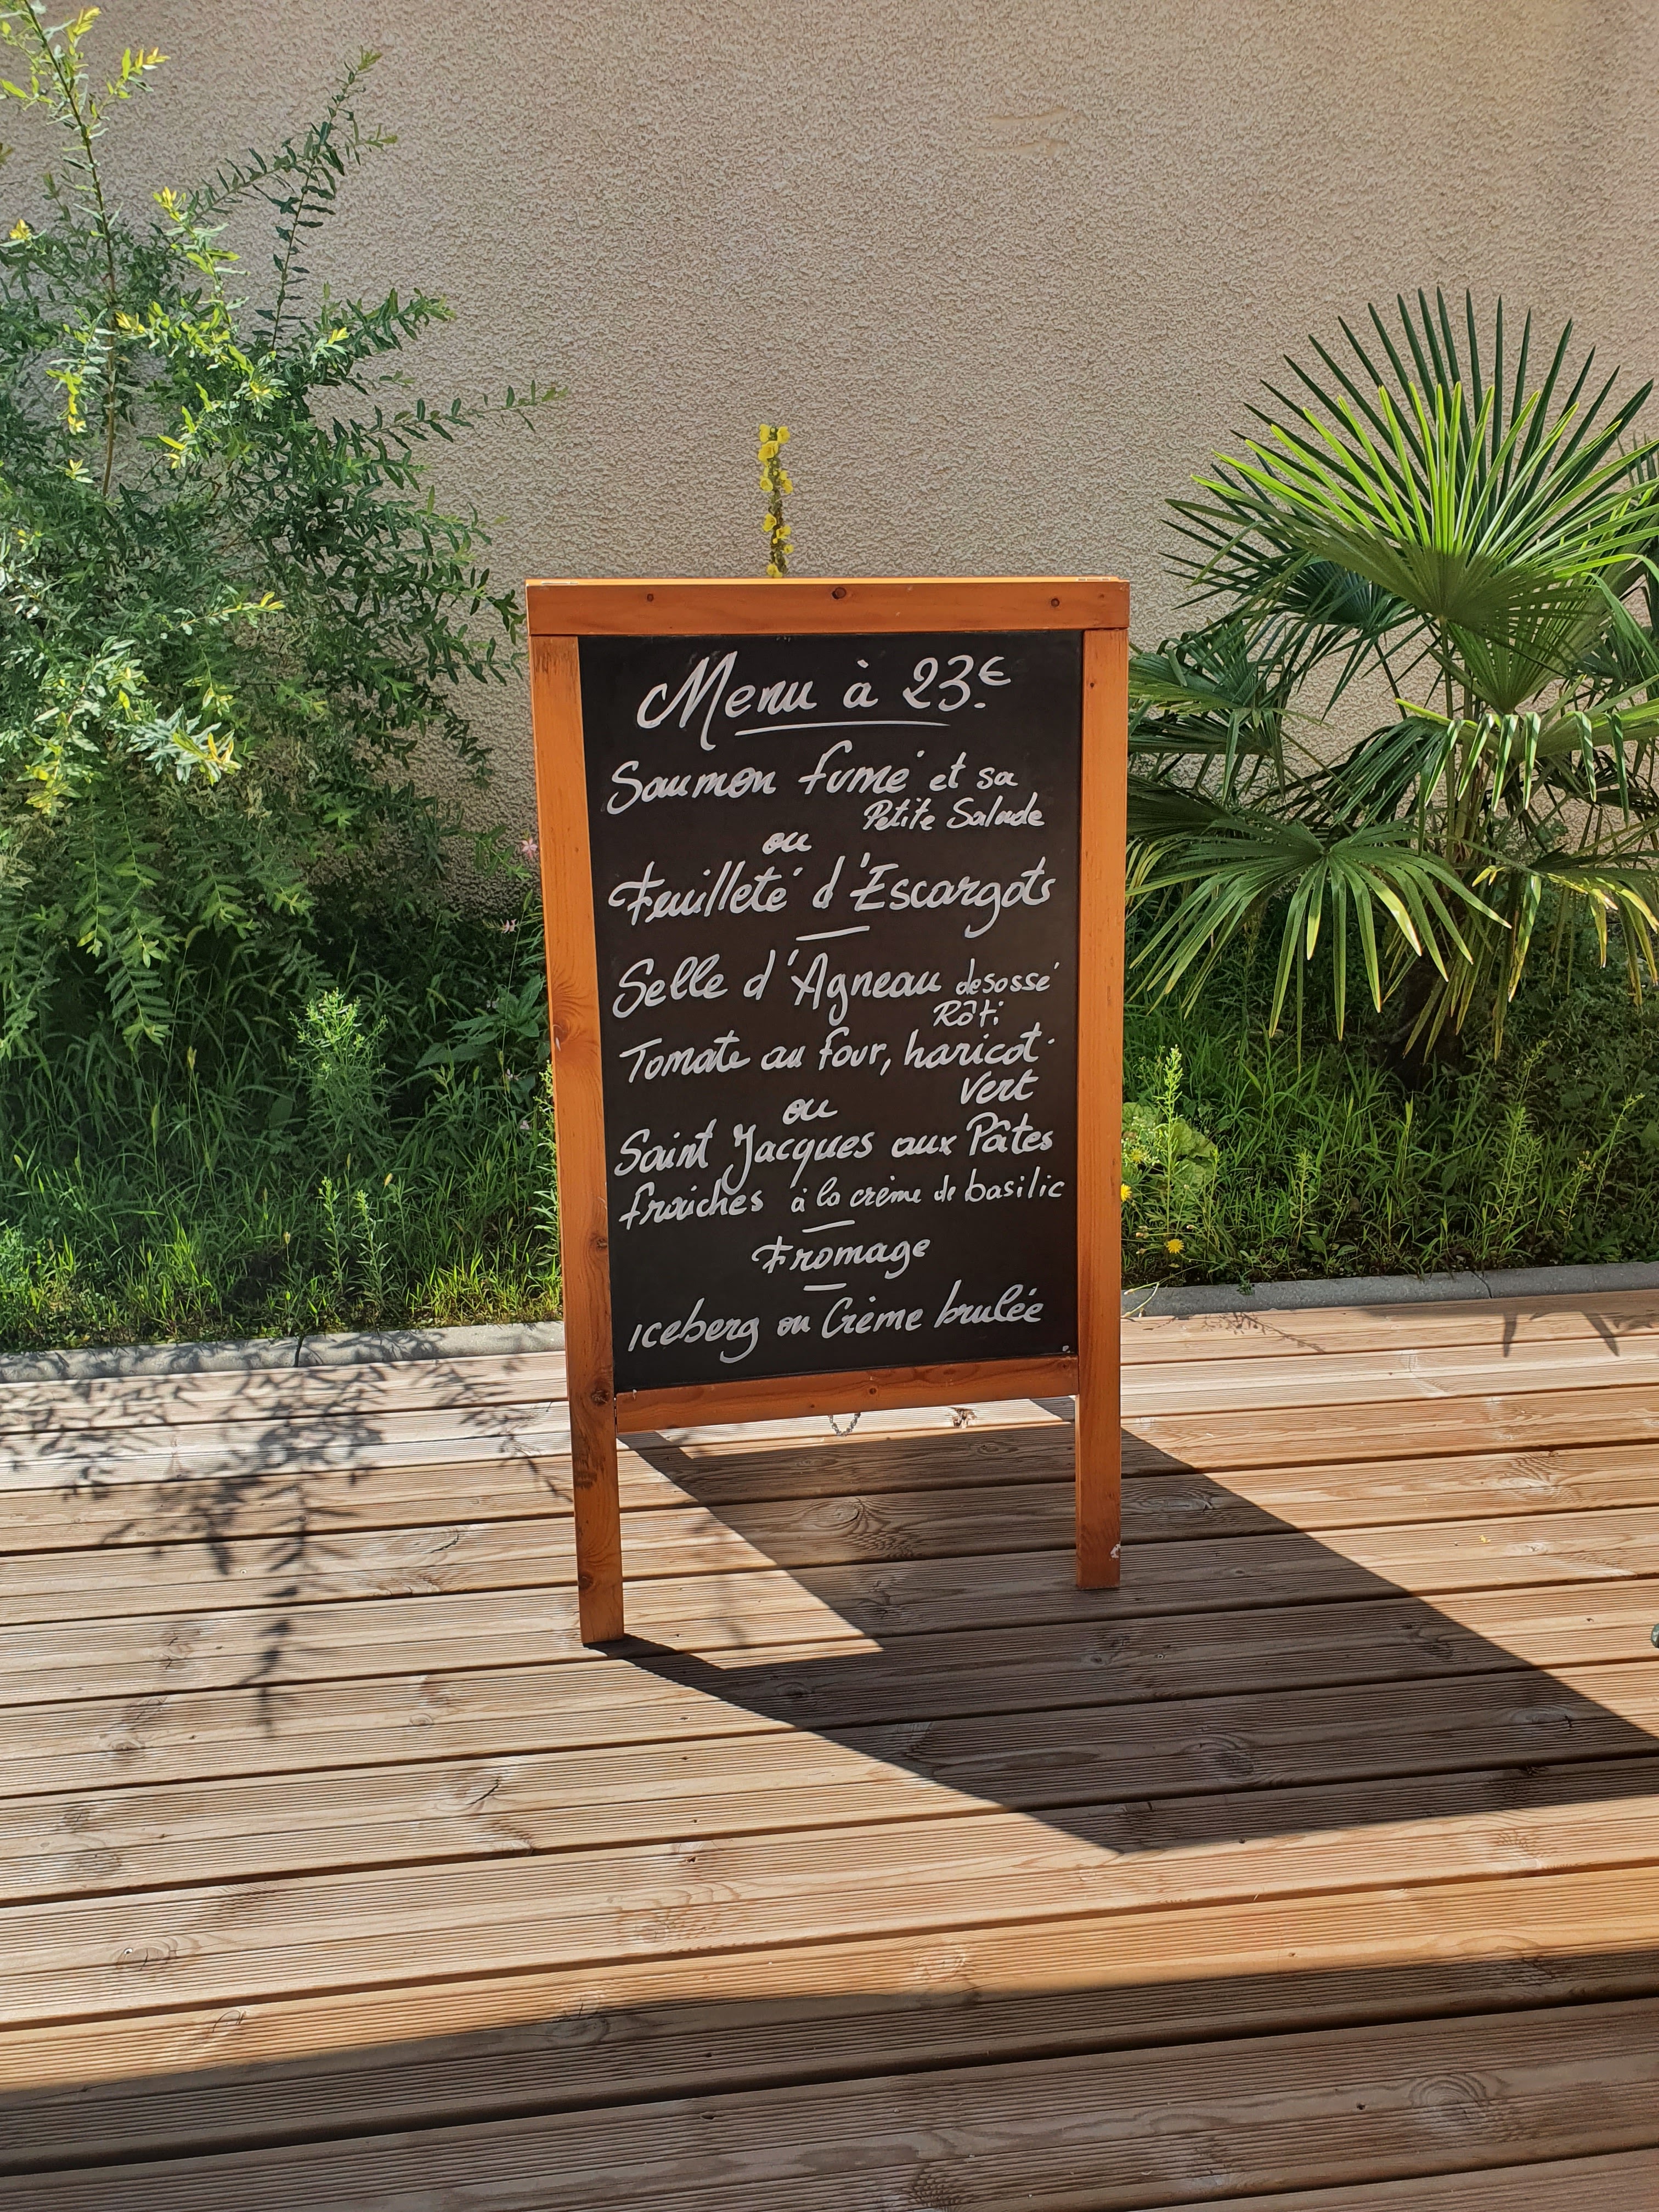 Menu à 23€
Saumon fumé et sa
Petite Salade
ou
Feuilleté d'Escargots
Selle d'Agneau desossé
Rôti
Tomate au four, haricot
vert
ou
Saint Jacques aux Pâtes
fraiches à la crème de basilic
Fromage
Iceberg ou Crème brulée